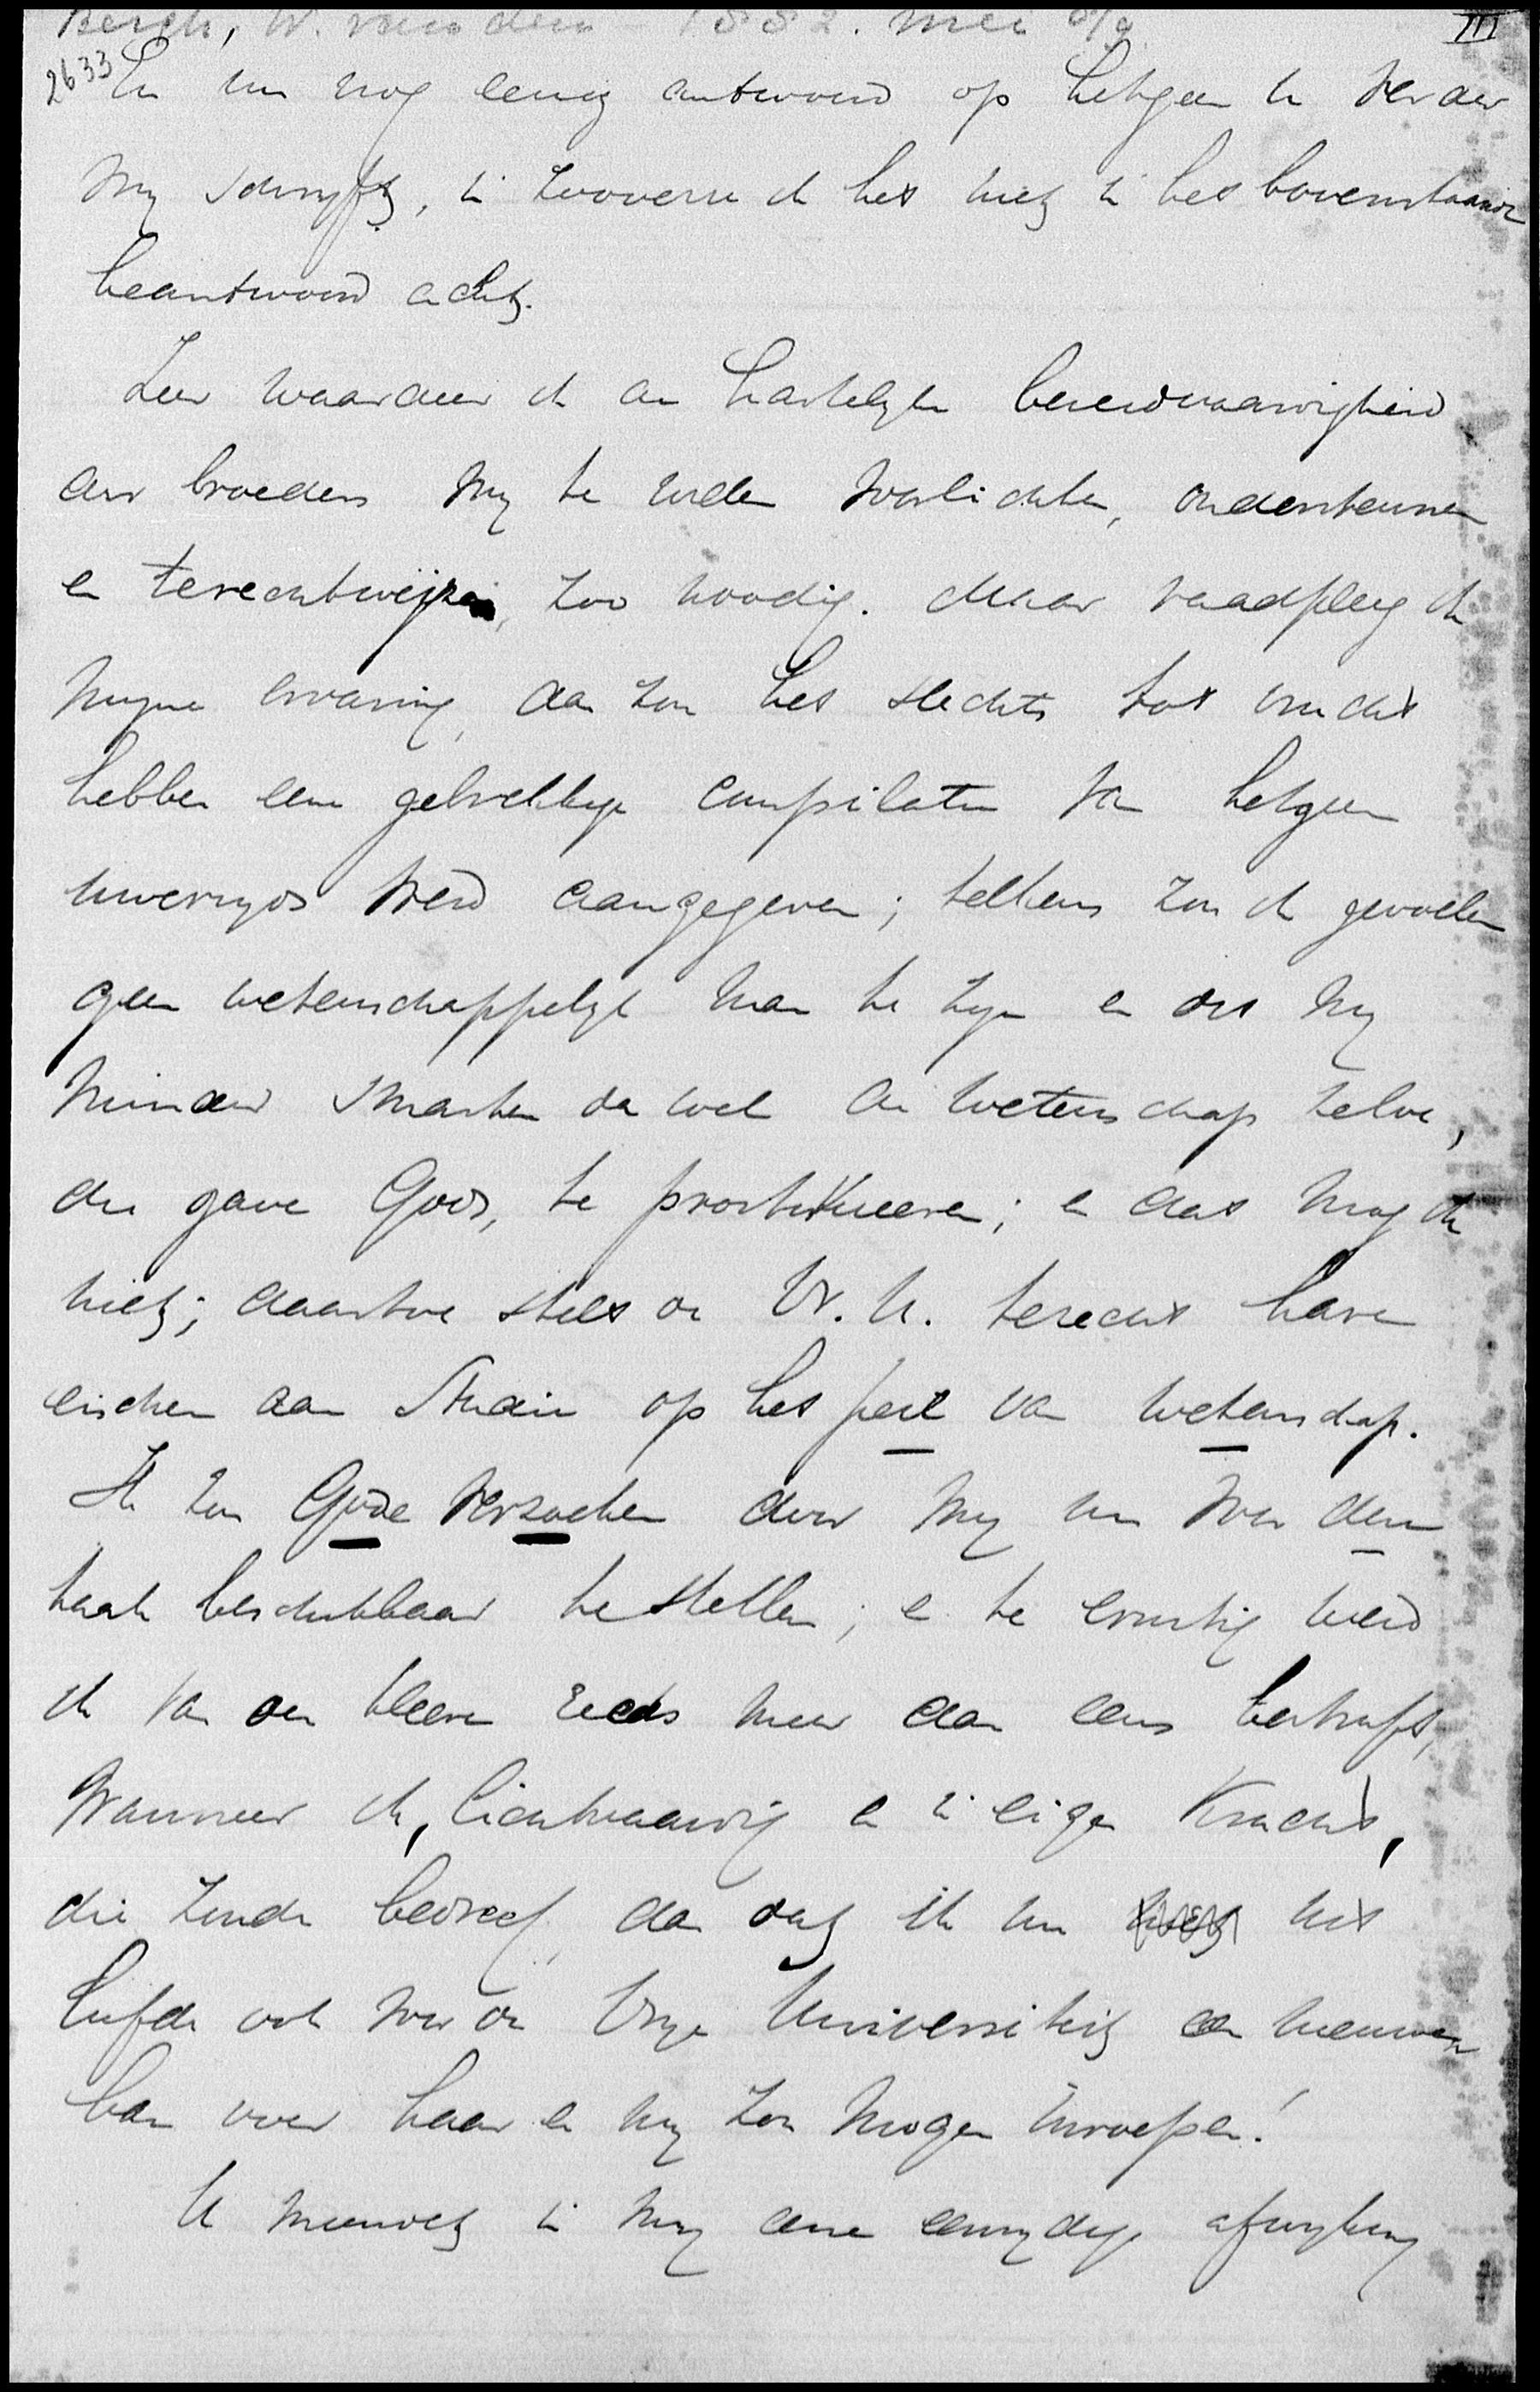 Bergh, W. van den 1882. mei 8/9
III
2633
En nu nog eenig antwoord op hetgeen U verder
mij schrijft, in zooverre ik het niet in het bovenstaande
beantwoord acht.
Zeer waardeer ik de hartelijke bereidvaardigheid
der broeders mij te willen voorlichten, ondersteunen
en terechtwijzen, zoo noodig. Maar raadpleeg ik
mijne ervaring, dan zou het slechts tot vrucht
hebben eene gebrekkige compilatie van hetgeen
mij werd aangegeven; telkens zou ik gevoelen
geen wetenschappelijk man te zijn en dit mij
minder smarten dan wel de wetenschap zelve,
die gave Gods, te prostitueeren; en dat mag ik
niet; daartoe stelt de Vr. U. terecht hare
eischen aan Studie op het peil van wetenschap.
Ik zou Gode verzoeken door mij nu voor deze
taak beschikbaar te stellen; en te ernstig werd
ik van den Heere reeds meer dan eens bestraft,
wanneer ik, lichtvaardig en in eigen kracht,
die zonde bedreef, dan dat ik nu uit
liefde ook voor de Vrije Universiteit een nieuwen
ban over haar en mij zou mogen inroepen!
U meendet in mij eene eenzijdige afwijking